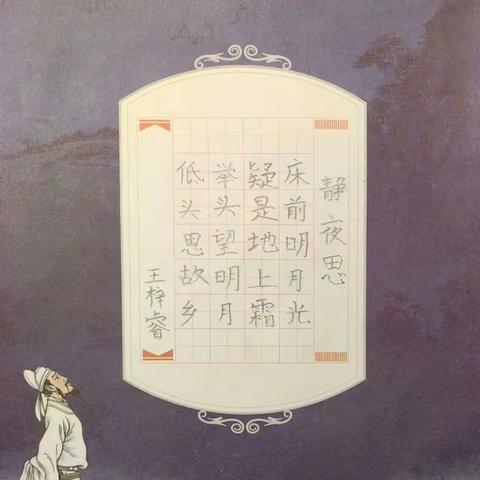 静夜思
床前明月光
疑是地上霜
举头望明月
低头思故乡
王梓睿